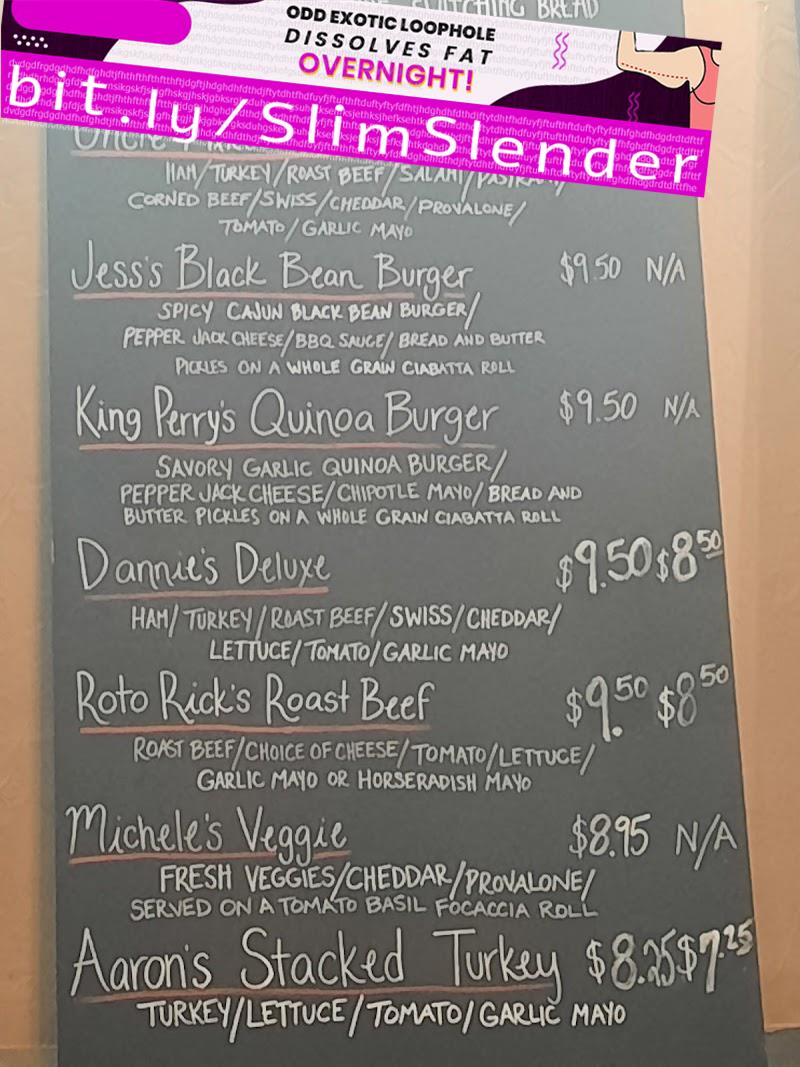 SWITCHING BREAD
ODD EXOTIC LOOPHOLE
DISSOLVES FAT
OVERNIGHT!
bit.ly/SlimSlender
Uncle
HAM/TURKEY/ROAST BEEF/SALAMI/PASTRAMI/
CORNED BEEF/SWISS/CHEDDAR/PROVALONE/
TOMATO/GARLIC MAYO
Jess's Black Bean Burger $9.50 N/A
SPICY CAJUN BLACK BEAN BURGER/
PEPPER JACK CHEESE/BBQ SAUCE/BREAD AND BUTTER
PICKLES ON A WHOLE GRAIN CIABATTA ROLL
King Perry's Quinoa Burger $9.50 N/A
SAVORY GARLIC QUINOA BURGER/
PEPPER JACK CHEESE/CHIPOTLE MAYO/BREAD AND
BUTTER PICKLES ON A WHOLE GRAIN CIABATTA ROLL
Dannie's Deluxe $9.50 $8.50
HAM/TURKEY/ROAST BEEF/SWISS/CHEDDAR/
LETTUCE/TOMATO/GARLIC MAYO
Roto Rick's Roast Beef $9.50 $8.50
ROAST BEEF/CHOICE OF CHEESE/TOMATO/LETTUCE/
GARLIC MAYO OR HORSERADISH MAYO
Michele's Veggie $8.95 N/A
FRESH VEGGIES/CHEDDAR/PROVALONE/
SERVED ON A TOMATO BASIL FOCACCIA ROLL
Aaron's Stacked Turkey $8.25 $7.25
TURKEY/LETTUCE/TOMATO/GARLIC MAYO